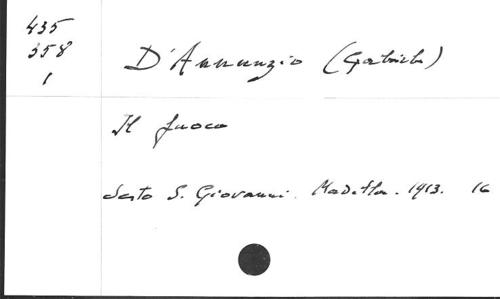 435
358
1
D'Annunzio (Gabriele)
Il fuoco
Sesto S. Giovanni. Madella. 1913. 16